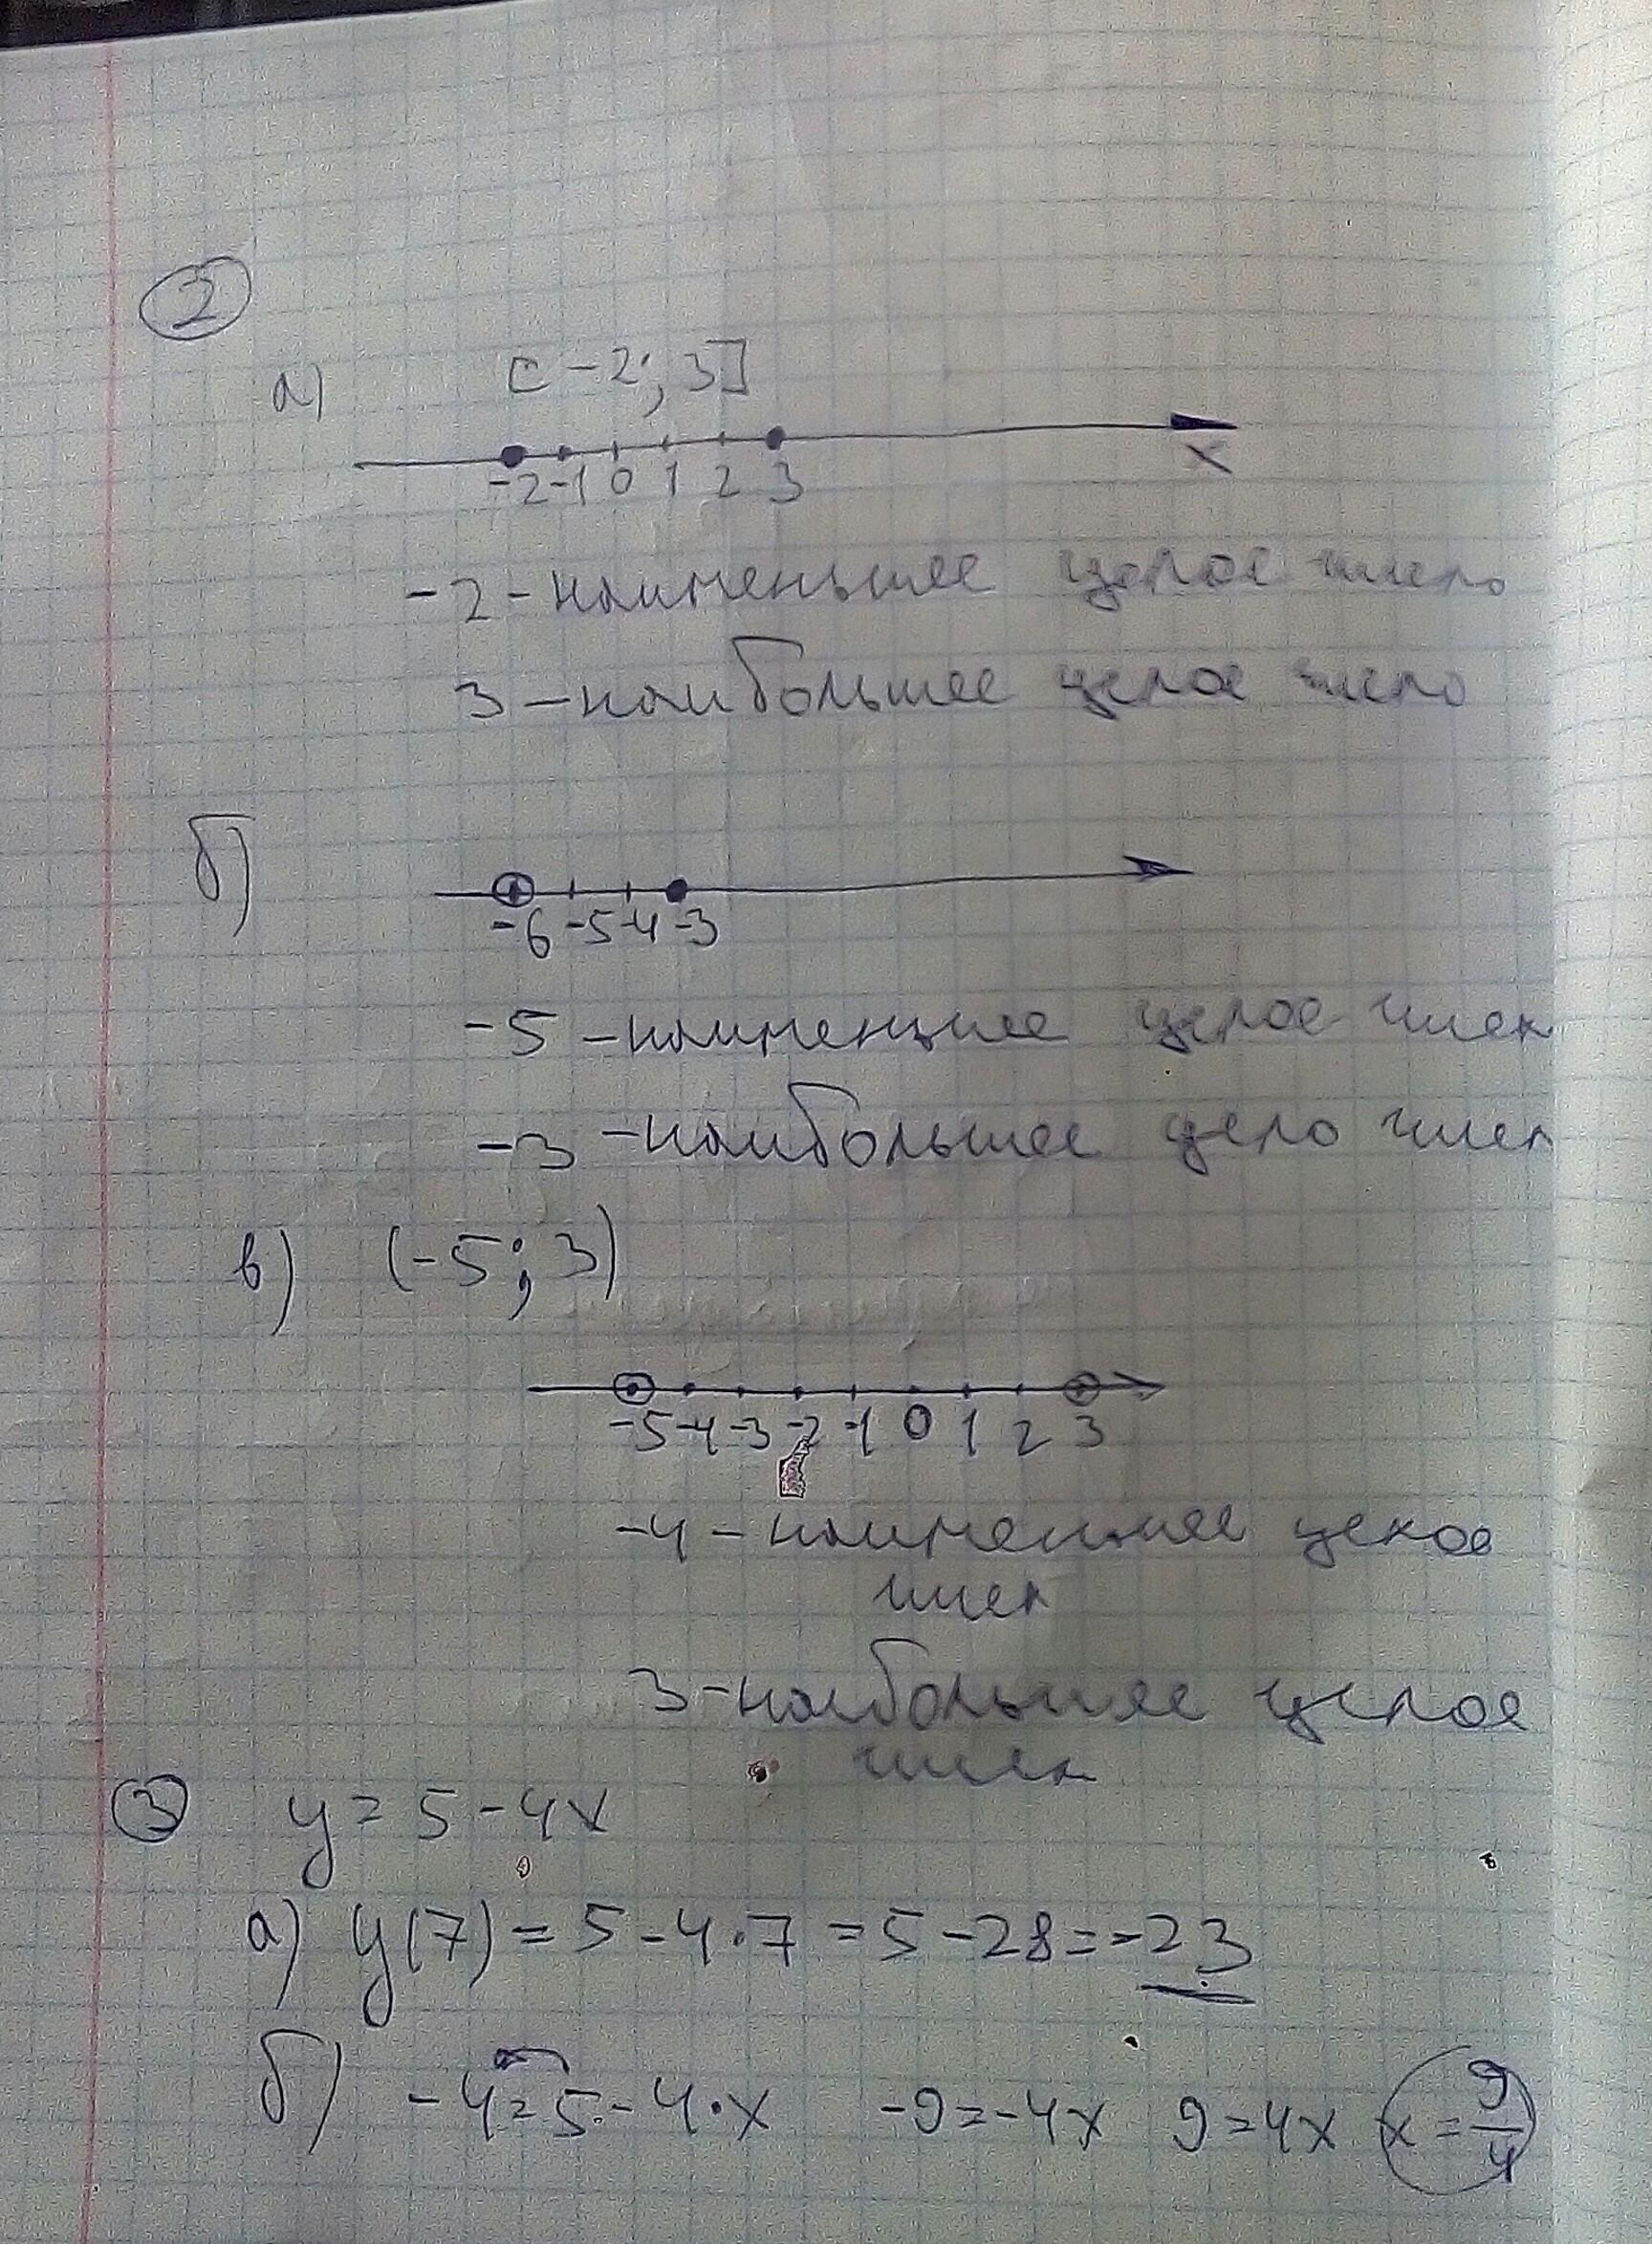 2
а) [-2; 3]
-2 -1 0 1 2 3
x
-2 - наименьшее целое число
3 - наибольшее целое число
б)
-6 -5 -4 -3
-5 - наименцшее целое числ
-3 - наибольшее цело числ
в) (-5; 3)
-5 -4 -3 -2 -1 0 1 2 3
-4 - наименшее целое
числ
3 - наибольшее целое
числ
3 y = 5 - 4x
а) y(7) = 5 - 4·7 = 5 - 28 = -23
б) -4 = 5 - 4·x -9 = -4x 9 = 4x x = 9/4